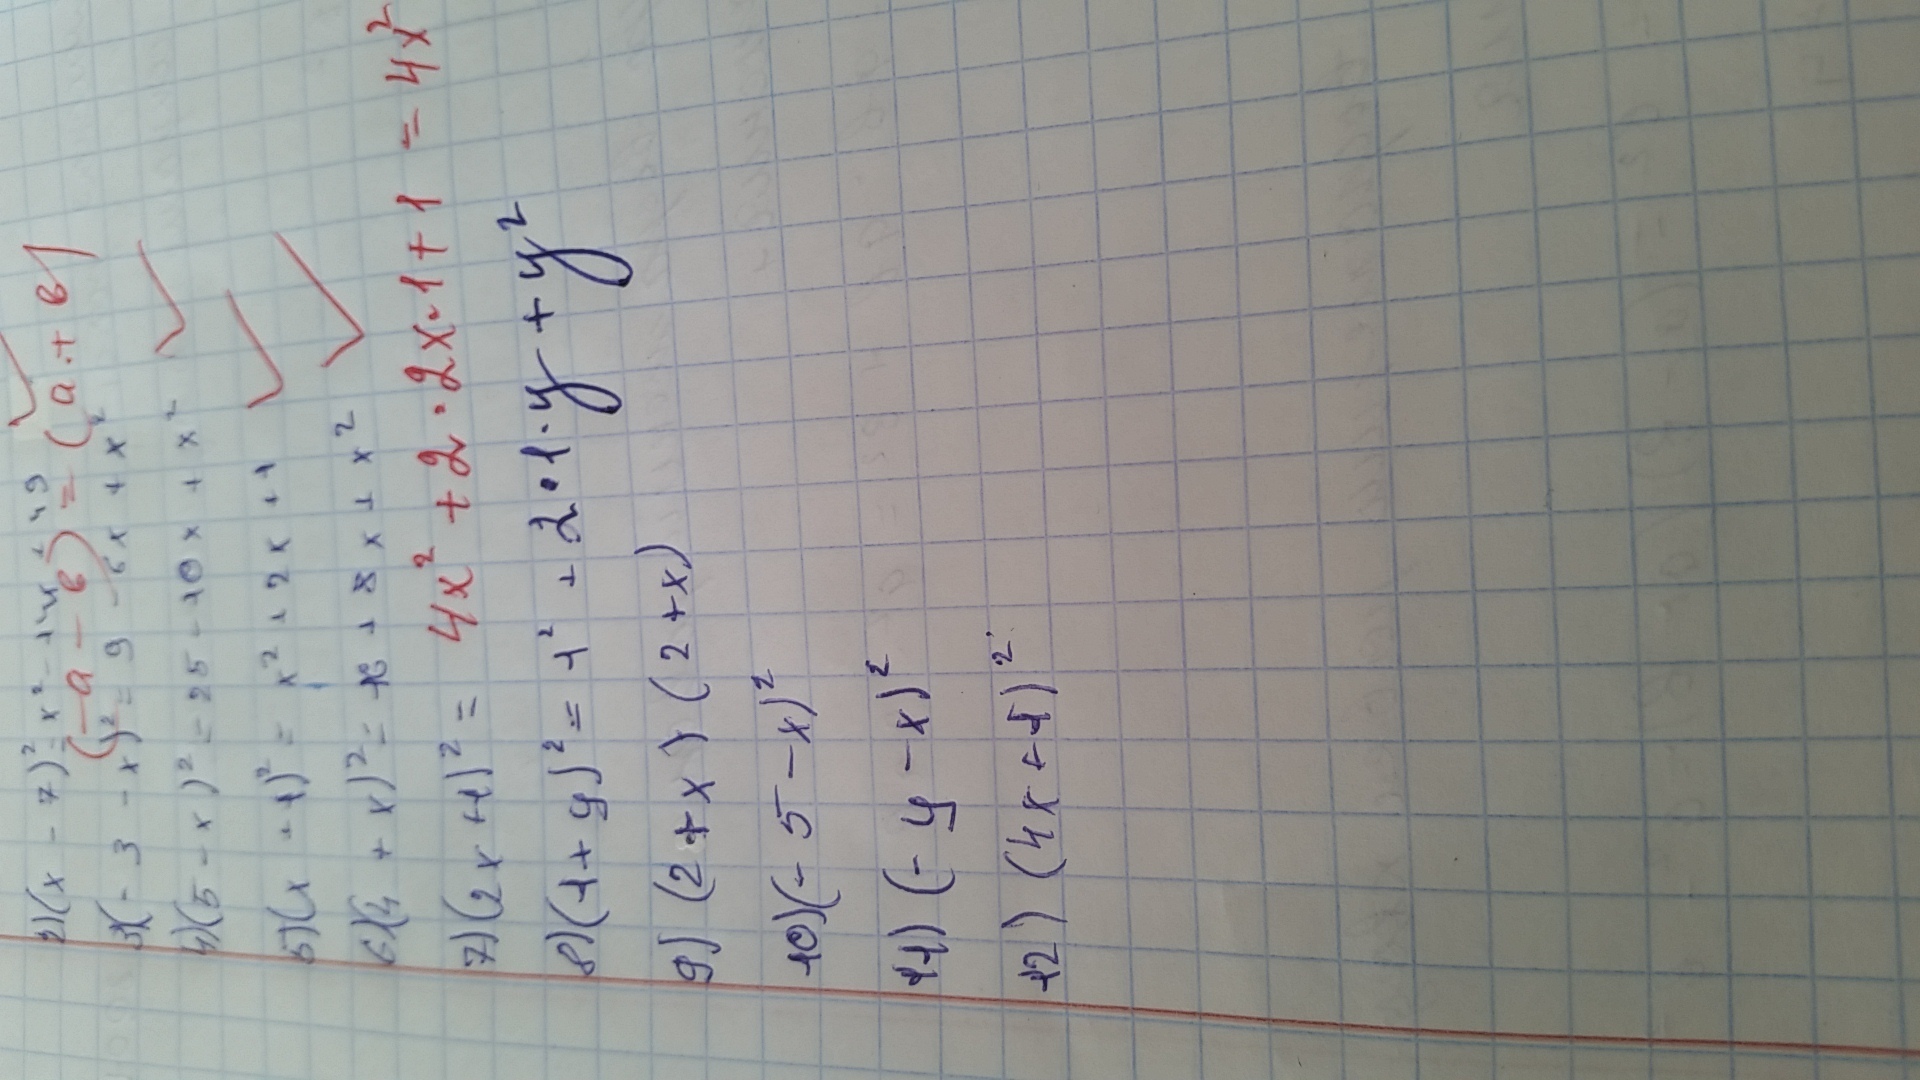 2)(x - 7)² = x² - 14x + 49
(-a - в) = (a + в)
3)(-3 - x)² = 9 - 6x + x²
4)(5 - x)² = 25 - 10x + x²
5)(x + 1)² = x² + 2x + 1
6)(4 + x)² = 16 + 8x + x²
7)(2x + 1)² = 4x² + 2·2x·1 + 1 = 4x²
8)(1 + y)² = 1² + 2·1·y + y²
9) (2 + x) (2 + x)
10)(-5 - x)²
11) (-y - x)²
12) (4x + 1)²